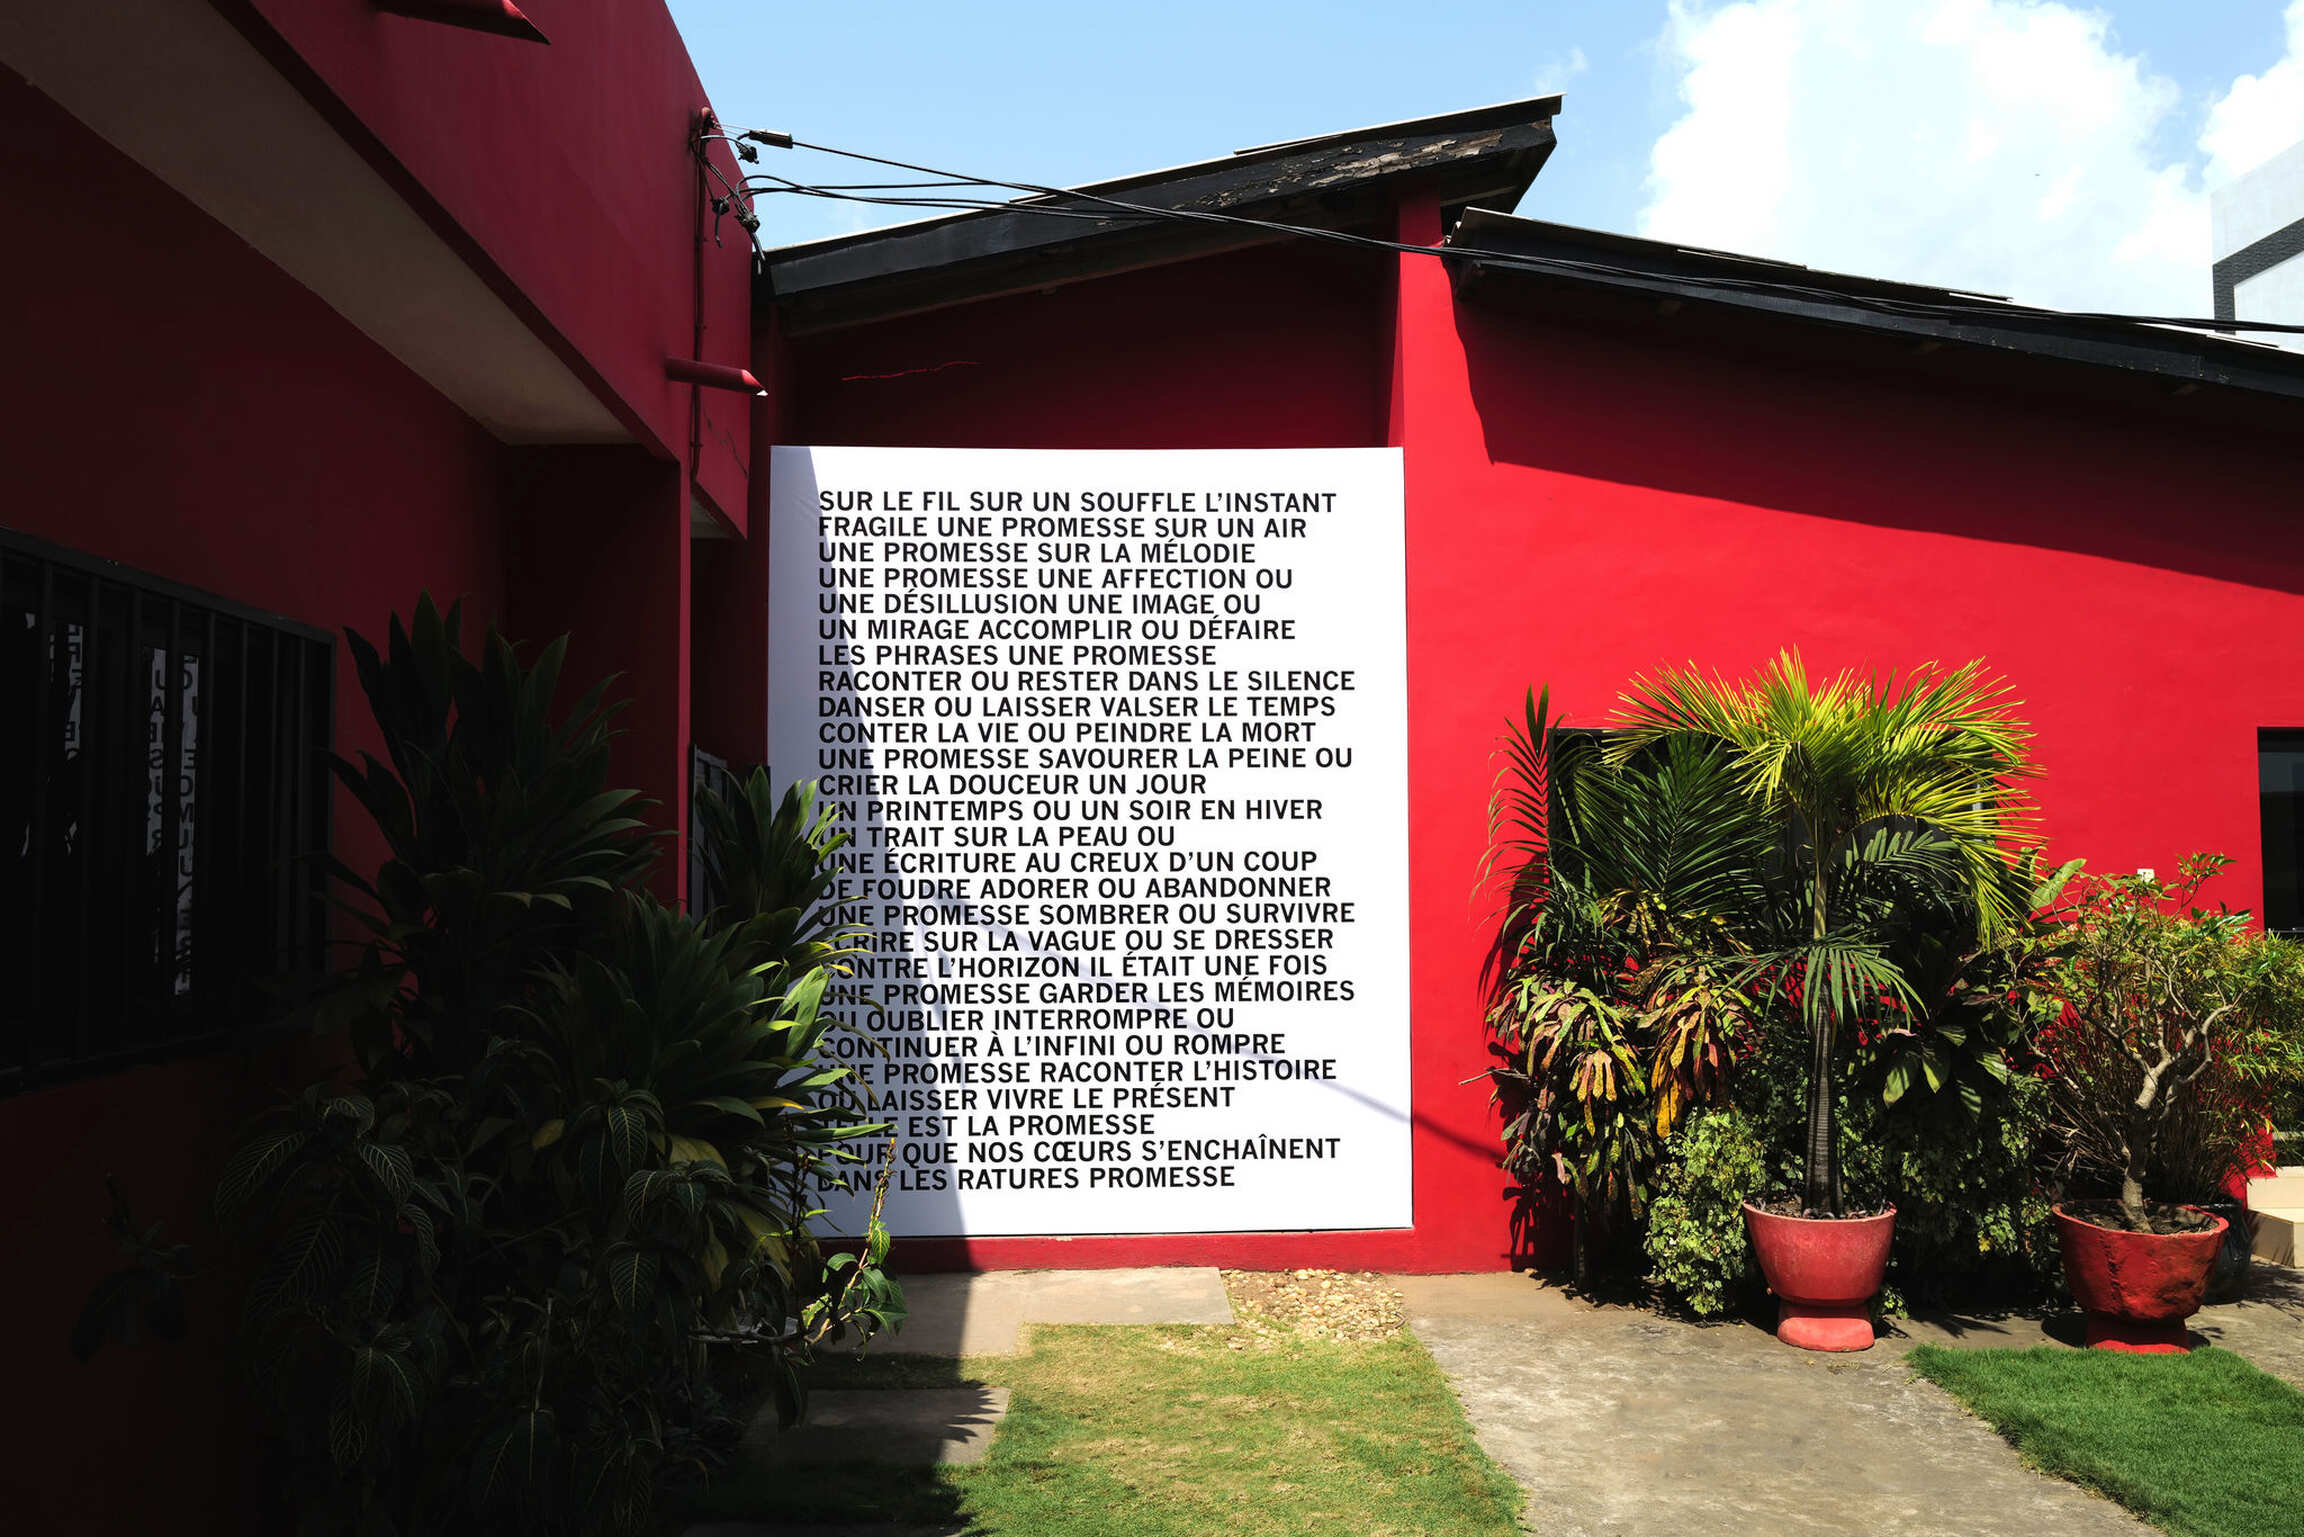 SUR LE FIL SUR UN SOUFFLE L'INSTANT
FRAGILE UNE PROMESSE SUR UN AIR
UNE PROMESSE SUR LA MÉLODIE
UNE PROMESSE UNE AFFECTION OU
UNE DÉSILLUSION UNE IMAGE OU
UN MIRAGE ACCOMPLIR OU DÉFAIRE
LES PHRASES UNE PROMESSE
RACONTER OU RESTER DANS LE SILENCE
DANSER OU LAISSER VALSER LE TEMPS
CONTER LA VIE OU PEINDRE LA MORT
UNE PROMESSE SAVOURER LA PEINE OU
CRIER LA DOUCEUR UN JOUR
UN PRINTEMPS OU UN SOIR EN HIVER
UN TRAIT SUR LA PEAU OU
UNE ÉCRITURE AU CREUX D'UN COUP
DE FOUDRE ADORER OU ABANDONNER
UNE PROMESSE SOMBRER OU SURVIVRE
ÉCRIRE SUR LA VAGUE OU SE DRESSER
CONTRE L'HORIZON IL ÉTAIT UNE FOIS
UNE PROMESSE GARDER LES MÉMOIRES
OU OUBLIER INTERROMPRE OU
CONTINUER À L'INFINI OU ROMPRE
UNE PROMESSE RACONTER L'HISTOIRE
OU LAISSER VIVRE LE PRÉSENT
TELLE EST LA PROMESSE
POUR QUE NOS CŒURS S'ENCHAÎNENT
DANS LES RATURES PROMESSE